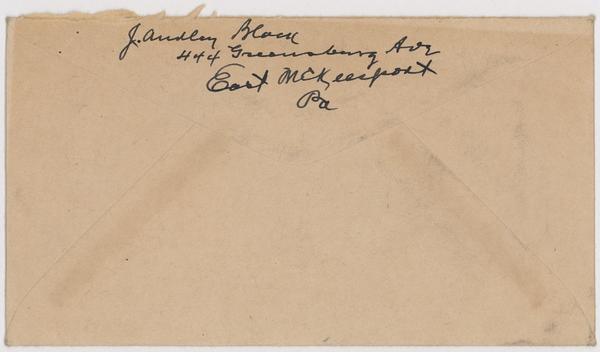 J. Audley Black
444 Greensburg Ave
East McKeesport
Pa